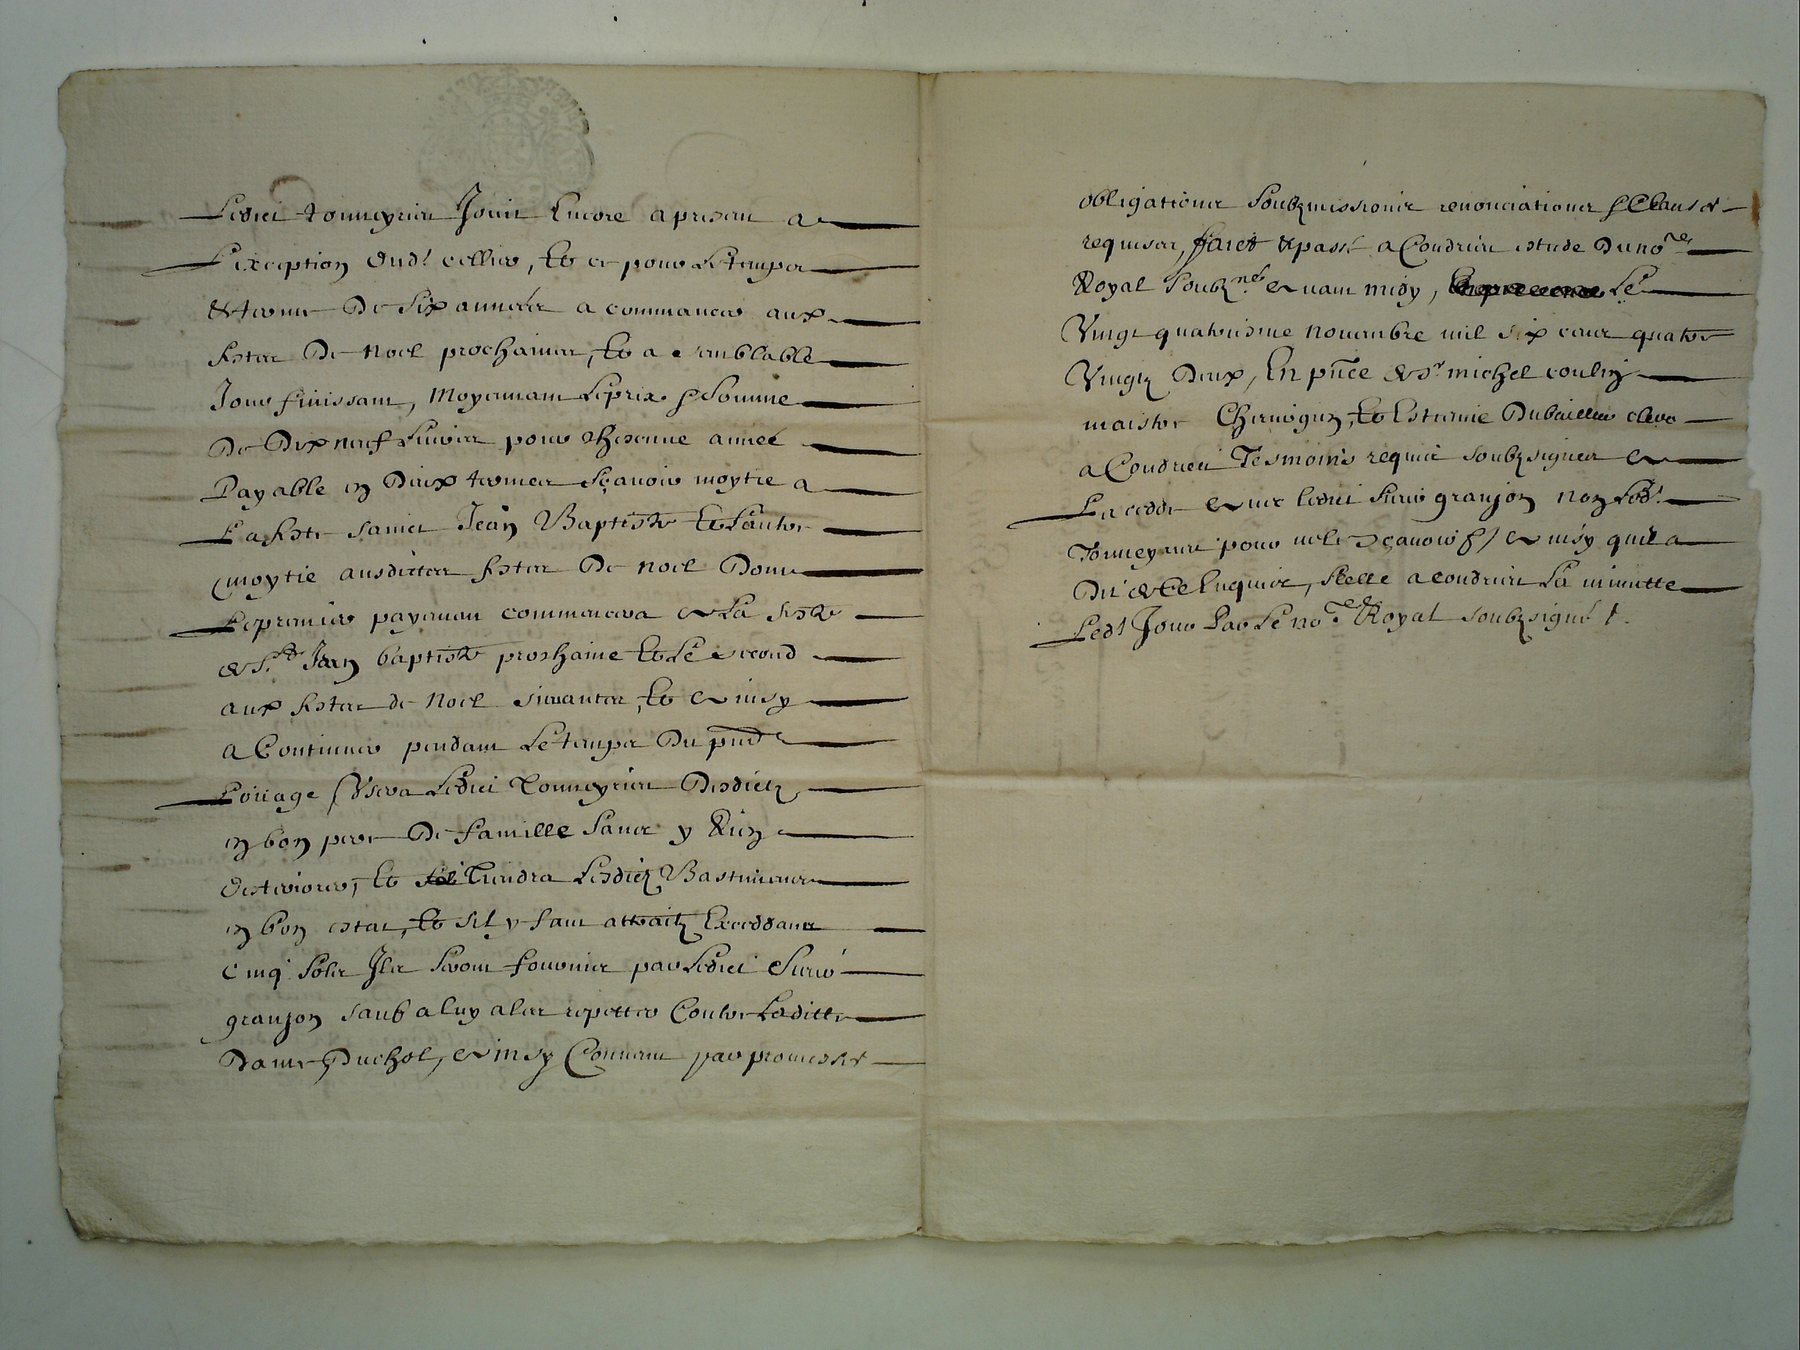 Ledict tonneyrieu Jouit Encore a present a
L'exception dud.t cellier, Et ce pour Le temps
& terme De Six années a commancer aux
festes De noel prochaines, Et a semblable
Jour finissant, Moyennant Le prix & Somme
De Dix neuf Livres pour chescune année
Payable en Deux termes Sçavoir moytie a
La feste sainct Jean Baptiste Et L'autre
moytie ausdictes festes De noel Dont
Le premier payement commencera a La feste
de S.t Jean baptiste prochaine Et Le second
aux festes de Noel suivantes, Et ainsy
a Continuer pendant Le temps Du pnt
Loüage Usera Ledict Tonneyrieu Desdictz
en bon pere De famille Sans y Rien
deteriorer, Et Tiendra Lesdictz Bastimens
en bon estat, Et sil y faut attraictz Exceddants
cinq Solz Ilz Seront fournis par Ledict Sieur
granjon sauf a luy a les repetter Contre Laditte
Dame Duchol, ainsy Convenu par promesses
obligations Soubzmissions renonciations & Clauses
requises, faict & passé a Condrieu estude Du no.re
Royal Soubz.né avant midy, Le
Vingt quatriesme novembre mil six cent quatre
Vingtz Deux, En pnce de s.r michel coulin
maistre Chirurgien, Et Estienne Dubailler clerc
a Condrieu Tesmoins requis soubzsignes a
La cedde avec ledict Sieur granjon non Led.t
Tonneyrieu pour ne le sçavoir ainsy quil a
Dit de ce Enquis, Scelle a condrieu La minutte
Led.t Jour Par Le no.re Royal soubzsigné